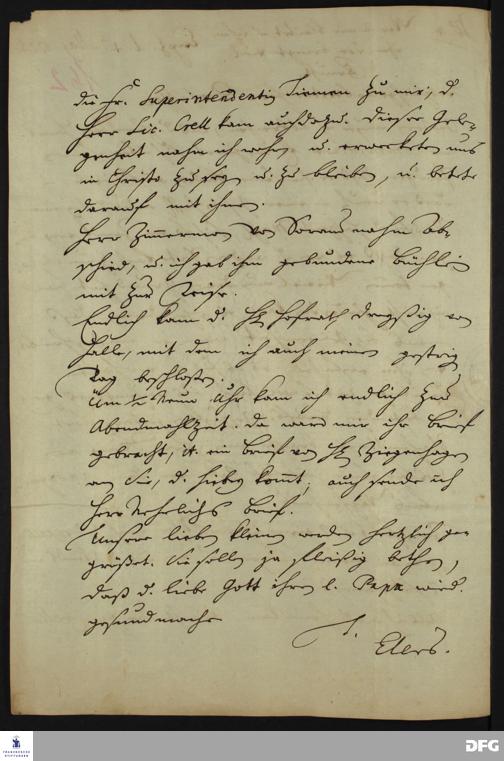 die Fr. Superintendentin Tiemen zu mir, d.
Herr Lic. Crell kam auch dazu. dieser Gele-
genheit nahm ich wahr, u. erweckten uns
in Christo zu seyn u. zu bleiben, u. betete
darauf mit ihnen.
Herr Zimmerman von Sorau nahm Ab-
schied, u. ich gab ihm gebundene Büchlein
mit zur Reise.
Endlich kam d. H. Hofrath von
Halle, mit dem ich auch meinen gestrig
Tag beschlossen.
Um ½ Neun Uhr kam ich endlich zur
Abendmahlzeit. da ward mir ihr Brief
gebracht, it. ein Brief von H. Ziegenhagen
an Sie, d. hiebey kommt; auch sende ich
Herr Brief.
Unsere lieben kleinen werden hertzlich ge-
grüßet. Sie sollen ja fleißig bethen,
daß d. liebe Gott ihren l. Papa wied.
gesund mache
Elers.
FRANCKESCHE
STIFTUNGEN
DFG